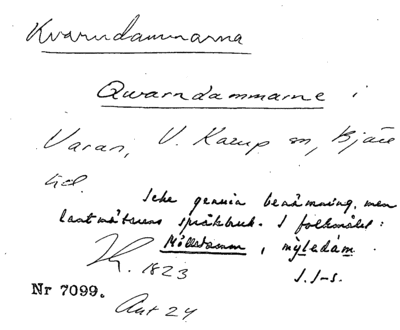 Kvarndammarna
Qwarndammarne i
Varan, V. Karup sn, Bjäre
hd.
Icke genuin benämning, men
lantmätarens språkbruk. I folkmålet:
Mölledamm, mýledàm.
1823
J. J-s.
Nr 7099.
Akt 24